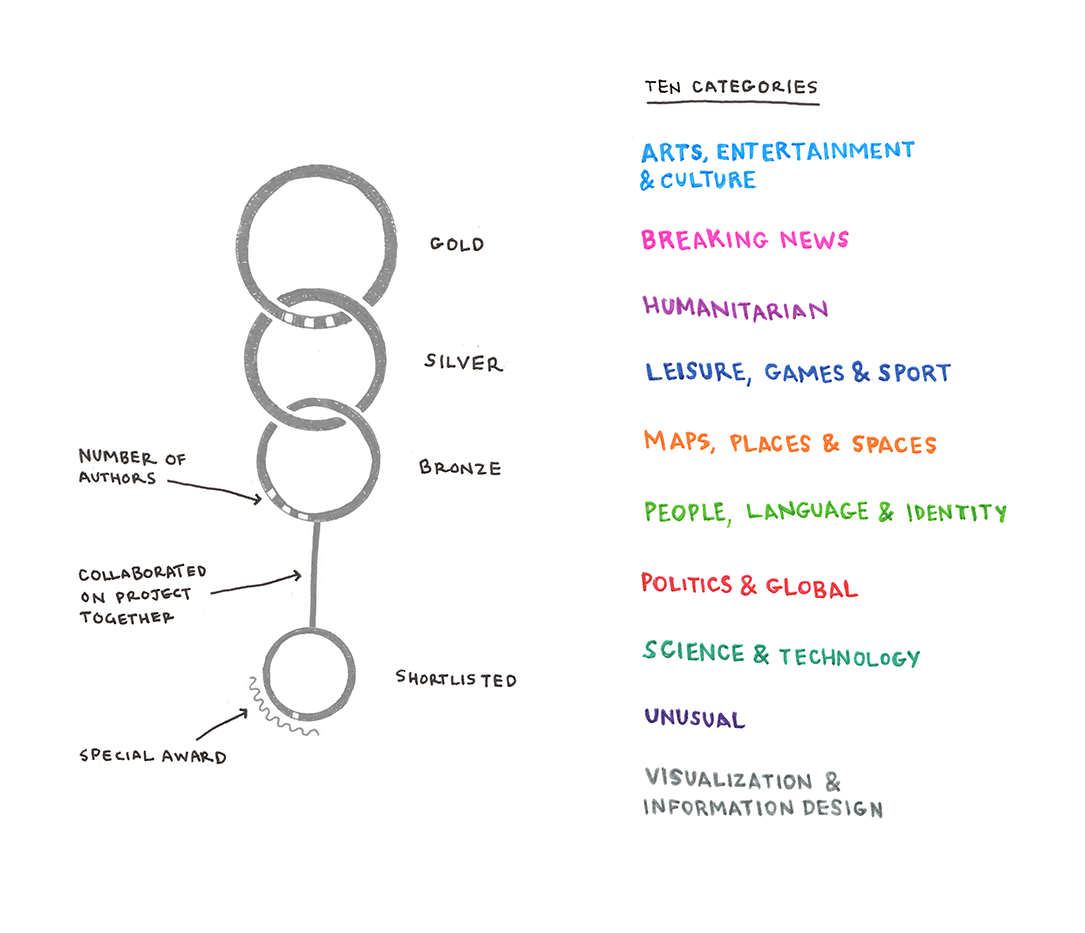 GOLD
SILVER
BRONZE
NUMBER OF
AUTHORS
COLLABORATED
ON PROJECT
TOGETHER
SHORTLISTED
SPECIAL AWARD
TEN CATEGORIES
ARTS, ENTERTAINMENT
& CULTURE
BREAKING NEWS
HUMANITARIAN
LEISURE, GAMES & SPORT
MAPS, PLACES & SPACES
PEOPLE, LANGUAGE & IDENTITY
POLITICS & GLOBAL
SCIENCE & TECHNOLOGY
UNUSUAL
VISUALIZATION &
INFORMATION DESIGN